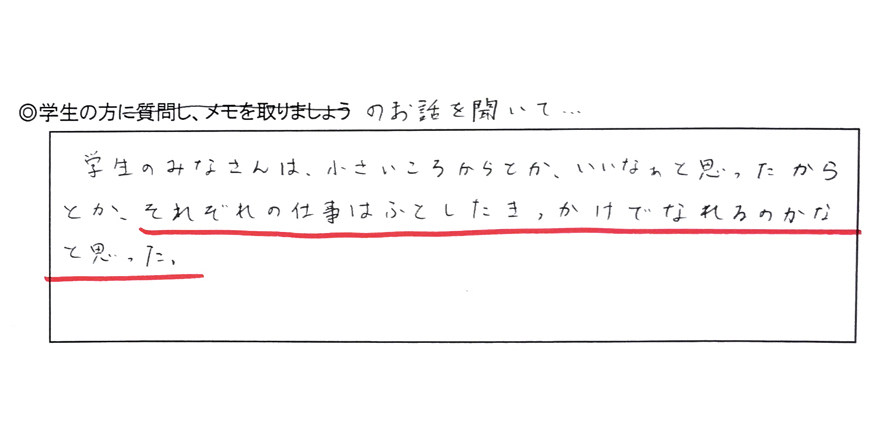 ◎学生の方に質問し、メモを取りましょう のお話を聞いて…
学生のみなさんは、小さいころからとか、いいなぁと思ったから
とか、それぞれの仕事はふとしたきっかけでなれるのかな
と思った。